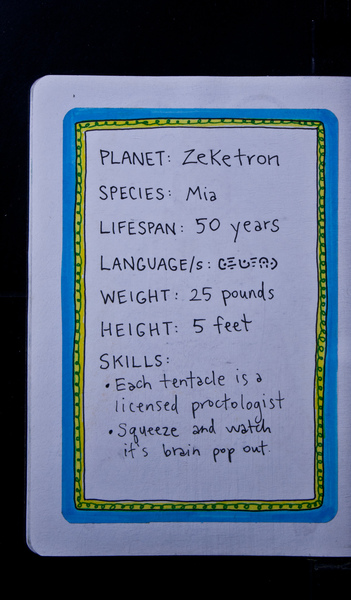 PLANET: Zeketron
SPECIES: Mia
LIFESPAN: 50 years
LANGUAGE/s:
WEIGHT: 25 pounds
HEIGHT: 5 feet
SKILLS:
• Each tentacle is a
licensed proctologist
• Squeeze and watch
it's brain pop out.